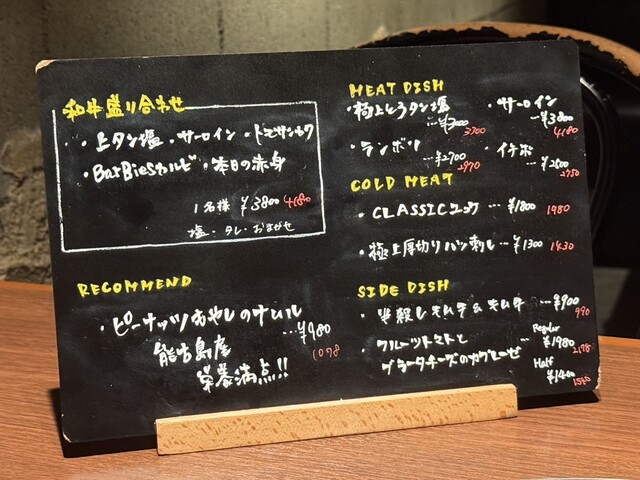 和牛盛り合わせ
・上タン塩・サーロイン・トモサンカク
・BarBiesカルビ・本日の赤身
1名様 ¥3800 4180
塩・タレ・おまかせ
RECOMMEND
・ピーナッツもやしのナムル
…¥980
1078
能古島産
栄養満点!!
MEAT DISH
・極上とろタン塩
…¥3000
3300
・サーロイン
…¥3800
4180
・ランボソ
…¥2700
2970
・イチボ
…¥2500
2750
COLD MEAT
・CLASSICユッケ…¥1800 1980
・極上厚切りハツ刺し…¥1300 1430
SIDE DISH
・半殺しキムチ&キムチ…¥900
990
・フルーツトマトと
ブラータチーズのカプレーゼ
Regular
…¥1980
2178
Half
¥1400
1540